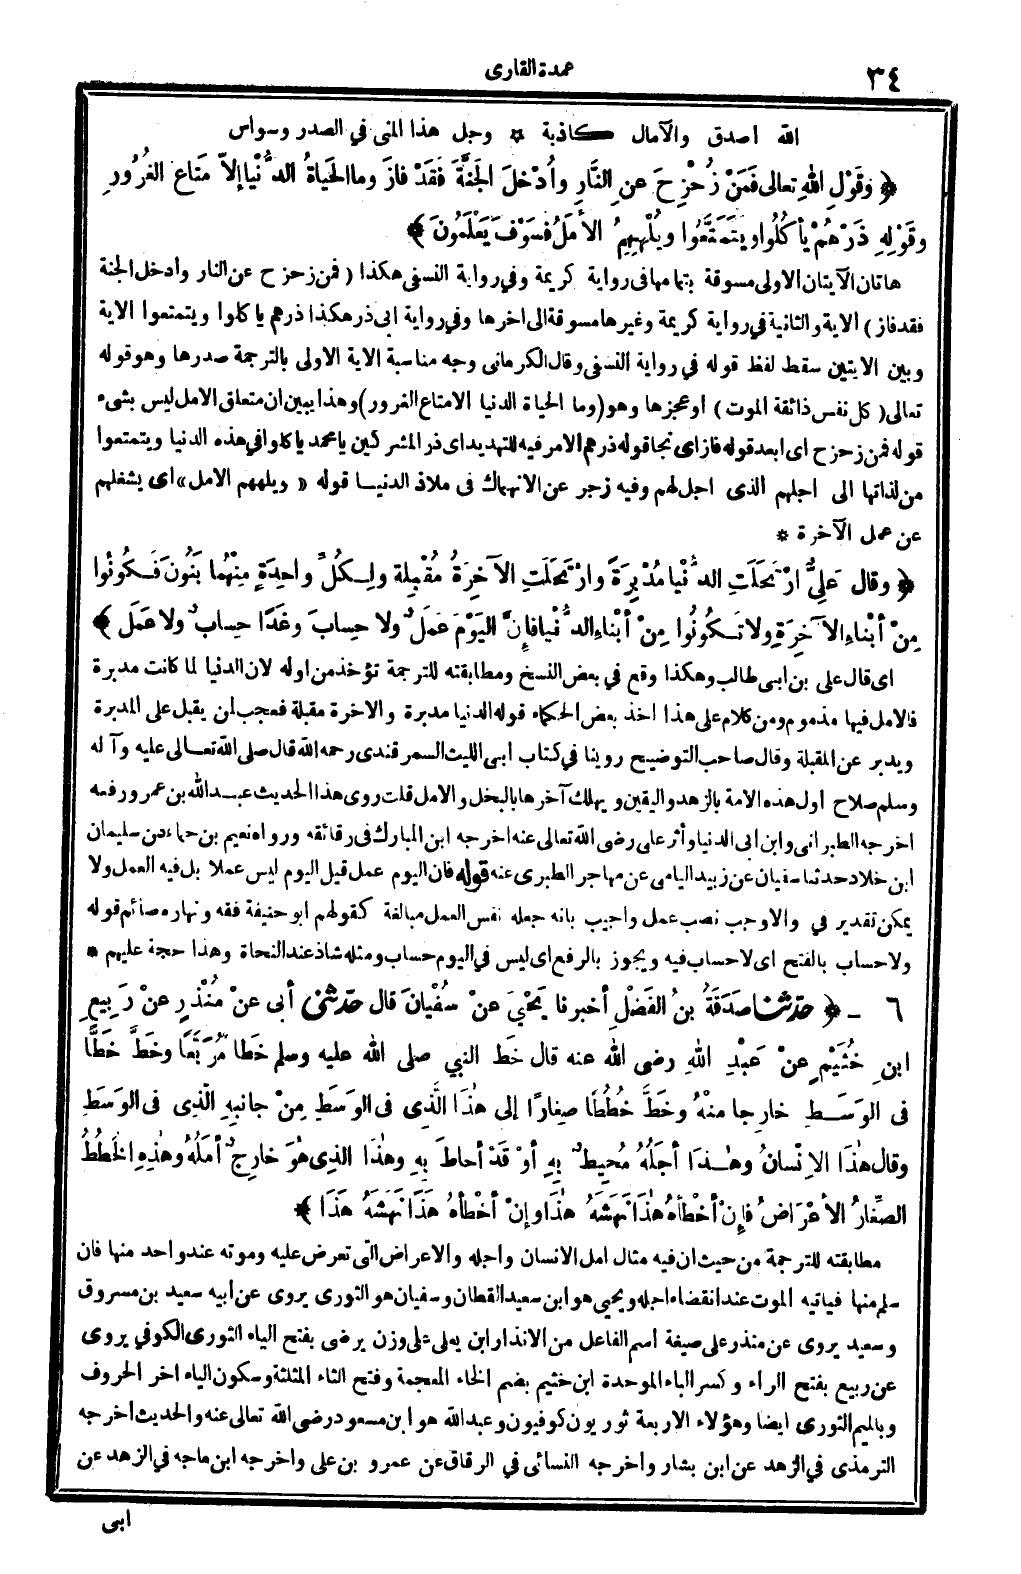 ٣٤
عمدة القارى
الله اصدق والآمال كاذبة * وجل هذا المنى في الصدر وسواس
﴿ وَقَوْلِ اللهِ تعالى فَمَنْ زُحْزِحَ عنِ النَّارِ وأُدْخلَ الجَنَّةَ فَقَدْ فازَ وما الحَياةُ الدُّنْيا إلاّ مَتاع الغُرُورِ
وقَوْلِهِ ذَرْهُمْ يأكُلُوا ويَتَمَتَّعُوا ويُلْهِهِمُ الأملُ فسَوْفَ يَعْلَمُونَ ﴾
هاتان الآيتان الاولى مسوقة بتمامها فى رواية كريمة وفي رواية النسفى هكذا ( فمن زحزح عن النار وأدخل الجنة
فقد فاز ) الاية والثانية في رواية كريمة وغيرها مسوقة الى اخرها وفي رواية ابى ذر هكذا ذرهم ياكلوا ويتمتعوا الاية
وبين الايتين سقط لفظ قوله في رواية النسفى وقال الكرمانى وجه مناسبة الاية الاولى بالترجمة صدرها وهو قوله
تعالى ( كل نفس ذائقة الموت ) او عجزها وهو ( وما الحياة الدنيا الامتاع الغرور ) وهذا يبين ان متعلق الامل ليس بشىء
قوله فمن زحزح اى ابعد قوله فاز اى نجا قوله ذرهم الامر فيه للتهديد اى ذر المشركين يا محمد ياكلوا في هذه الدنيا ويتمتعوا
من لذاتها الى اجلهم الذى اجل لهم وفيه زجر عن الانهماك فى ملاذ الدنيا قوله « ويلههم الامل » اى يشغلهم
عن عمل الآخرة *
﴿ وقال عَلِيٌّ ارْتَحَلَتِ الدُّنْيا مُدْبِرَةً وارْتَحَلَتِ الآخِرَةُ مُقْبِلة ولِكُلِّ واحِدَةٍ مِنْهُما بَنُونَ فَكُونُوا
مِنْ أبْناءِ الآخِرَةِ ولا تَكُونُوا مِنْ أبْناءِ الدُّنْيا فإنَّ اليَوْمَ عَمَلٌ ولا حِسابَ وغَدًا حِسابٌ ولا عَمَلَ ﴾
اى قال على بن ابى طالب وهكذا وقع في بعض النسخ ومطابقته للترجمة تؤخذ من اوله لان الدنيا لما كانت مدبرة
فالامل فيها مذموم ومن كلام على هذا اخذ بعض الحكماء قوله الدنيا مدبرة والاخرة مقبلة فعجب لمن يقبل على المدبرة
ويدبر عن المقبلة وقال صاحب التوضيح روينا في كتاب ابى الليث السمرقندى رحمه الله قال صلى الله تعالى عليه وآله
وسلم صلاح اول هذه الامة بالزهد واليقين ويهلك آخرها بالبخل والامل قلت روى هذا الحديث عبد الله بن عمرو رفعه
اخرجه الطبرانى وابن ابى الدنيا وأثر على رضى الله تعالى عنه اخرجه ابن المبارك فى رقائقه ورواه نعيم بن حماد من سليمان
ابن خلاد حدثنا سفيان عن زبيد اليامى عن مهاجر الطبرى عنه قوله فان اليوم عمل قيل اليوم ليس عملا بل فيه العمل ولا
يمكن تقدير في والاوجب نصب عمل واجيب بانه جعله نفس العمل مبالغة كقولهم ابو حنيفة فقه ونهاره صائم قوله
ولا حساب بالفتح اى لا حساب فيه ويجوز بالرفع اى ليس في اليوم حساب ومثله شاذ عند النحاة وهذا حجة عليهم *
٦ - ﴿ حدّثنا صَدَقَةُ بنُ الفَضْلِ أخبرنا يَحْيَ عنْ سُفْيانَ قال حدّثنى أبى عنْ مُنْذِرٍ عنْ رَبِيعِ
ابنِ خُثَيْمٍ عنْ عَبْدِ اللهِ رضى الله عنه قال خَط النبي صلى الله عليه وسلم خَطا مُرَبَّعًا وخَطَّ خَطًّا
فى الوَسَطِ خارِجا منْهُ وخَطَّ خُطُطًا صِغارًا إلى هٰذَا الَّذِى فى الوَسَطِ مِنْ جانِبِهِ الَّذِى فى الوَسَطِ
وقال هٰذَا الإِنْسانُ وهٰذَا أجَلُهُ مُحِيطٌ بِهِ أوْ قَدْ أحاطَ بِهِ وهٰذَا الذِى هُوَ خارِجٌ أمَلُهُ وهٰذِهِ الخُطُطُ
الصِّغارُ الأعْرَاضُ فإنْ أخْطأهُ هٰذَا نَهَشَهُ هٰذَا وإنْ أخْطأهُ هَذَا نَهَشَهُ هَذَا ﴾
مطابقته للترجمة من حيث ان فيه مثال امل الانسان واجله والاعراض التى تعرض عليه وموته عند واحد منها فان
سلم منها فياتيه الموت عند انقضاء اجله ويحيى هو ابن سعيد القطان وسفيان هو الثورى يروى عن ابيه سعيد بن مسروق
وسعيد يروى عن منذر على صيغة اسم الفاعل من الانذار ابن يعلى على وزن يرضى بفتح الياء الثورى الكوفي يروى
عن ربيع بفتح الراء وكسر الباء الموحدة ابن خثيم بضم الخاء المعجمة وفتح الثاء المثلثة وسكون الياء اخر الحروف
وبالميم الثورى ايضا وهؤلاء الاربعة ثوريون كوفيون وعبد الله هو ابن مسعود رضى الله تعالى عنه والحديث اخرجه
الترمذى في الزهد عن ابن بشار واخرجه النسائى في الرقاق عن عمرو بن على واخرجه ابن ماجه في الزهد عن
ابى